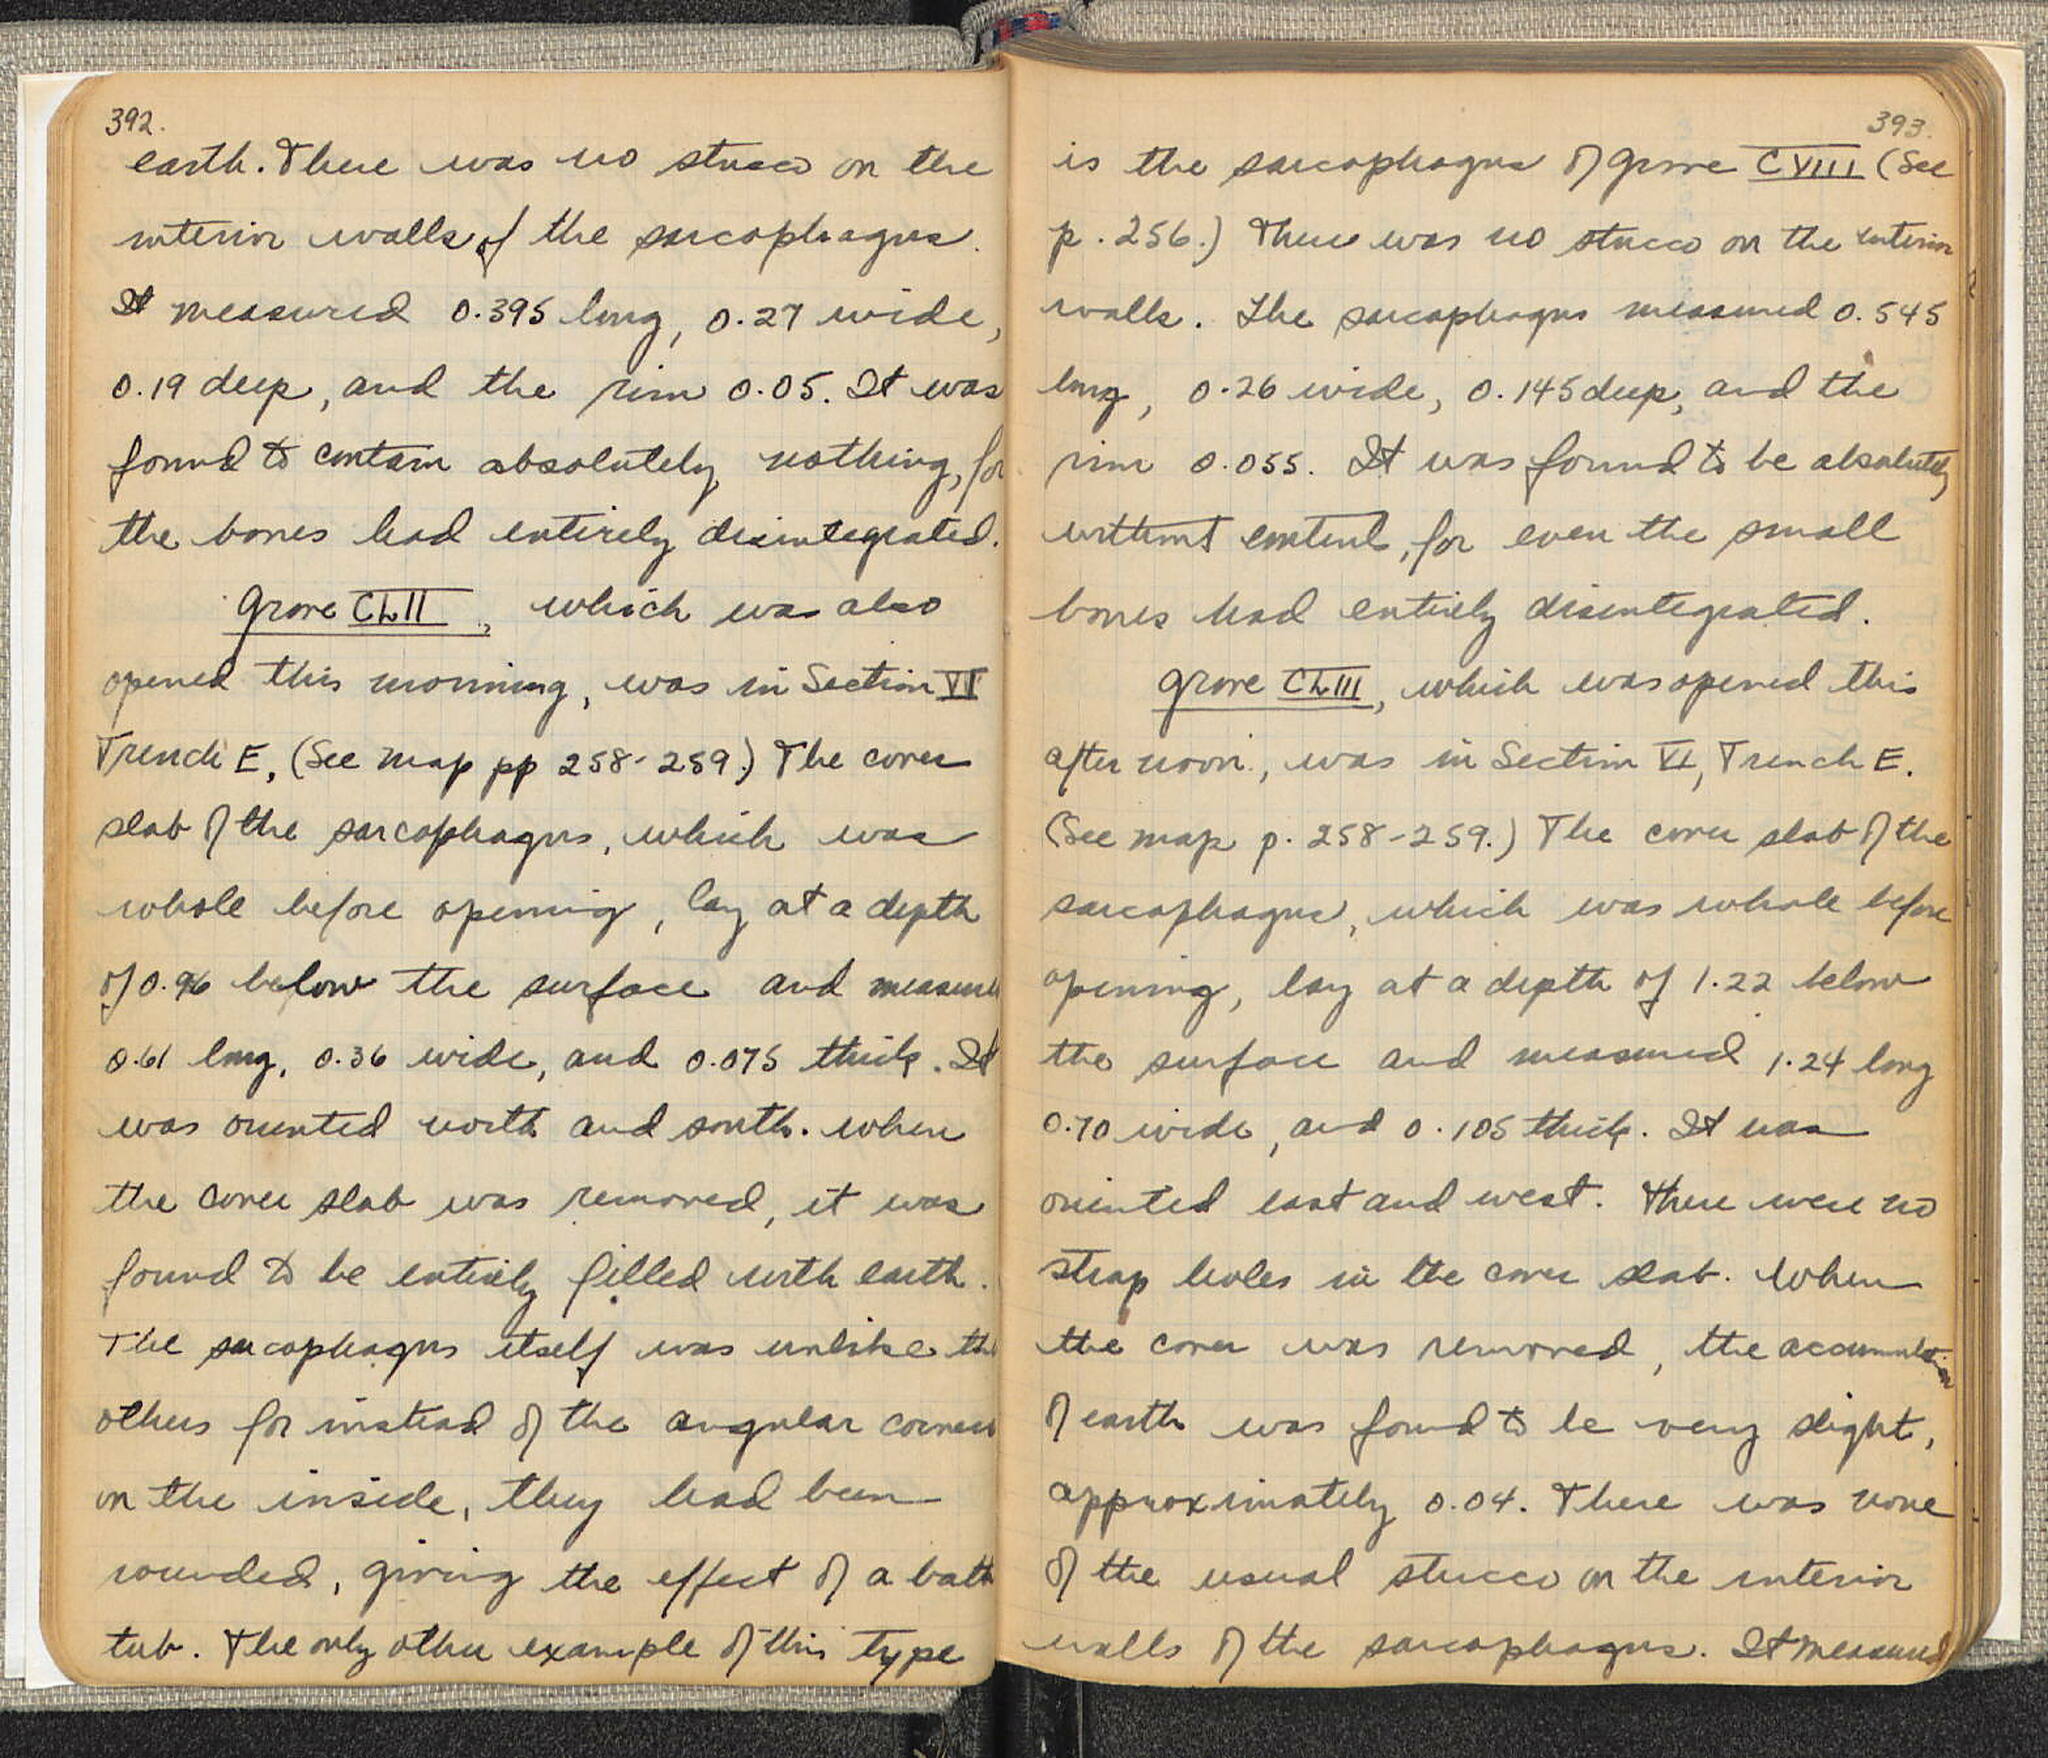 392.
earth. There was no stucco on the
interior walls of the sarcophagus.
It measured 0.395 long, 0.27 wide,
0.19 deep, and the rim 0.05. It was
found to contain absolutely nothing, for
the bones had entirely disintegrated.
Grave CLII, which was also
opened this morning, was in Section VI
Trench E. (See map pp 258-259.) The cover
slab of the sarcophagus, which was
whole before opening, lay at a depth
of 0.96 below the surface and measured
0.61 long, 0.36 wide, and 0.075 thick. It
was oriented north and south. When
the cover slab was removed, it was
found to be entirely filled with earth.
The sarcophagus itself was unlike the
others for instead of the angular corners
on the inside, they had been
rounded, giving the effect of a bath
tub. The only other example of this type
393.
is the sarcophagus of grave CVIII (See
p. 256.) There was no stucco on the interior
walls. The sarcophagus measured 0.545
long, 0.26 wide, 0.145 deep, and the
rim 0.055. It was found to be absolutely
without contents, for even the small
bones had entirely disintegrated.
Grave CLIII, which was opened this
after noon, was in Section VI, Trench E.
(See map p. 258-259.) The cover slab of the
sarcophagus, which was whole before
opening, lay at a depth of 1.22 below
the surface and measured 1.24 long
0.70 wide, and 0.105 thick. It was
oriented east and west. There were no
strap holes in the cover slab. When
the cover was removed, the accumulation
of earth was found to be very slight,
approximately 0.04. There was none
of the usual stucco on the interior
walls of the sarcophagus. It measured